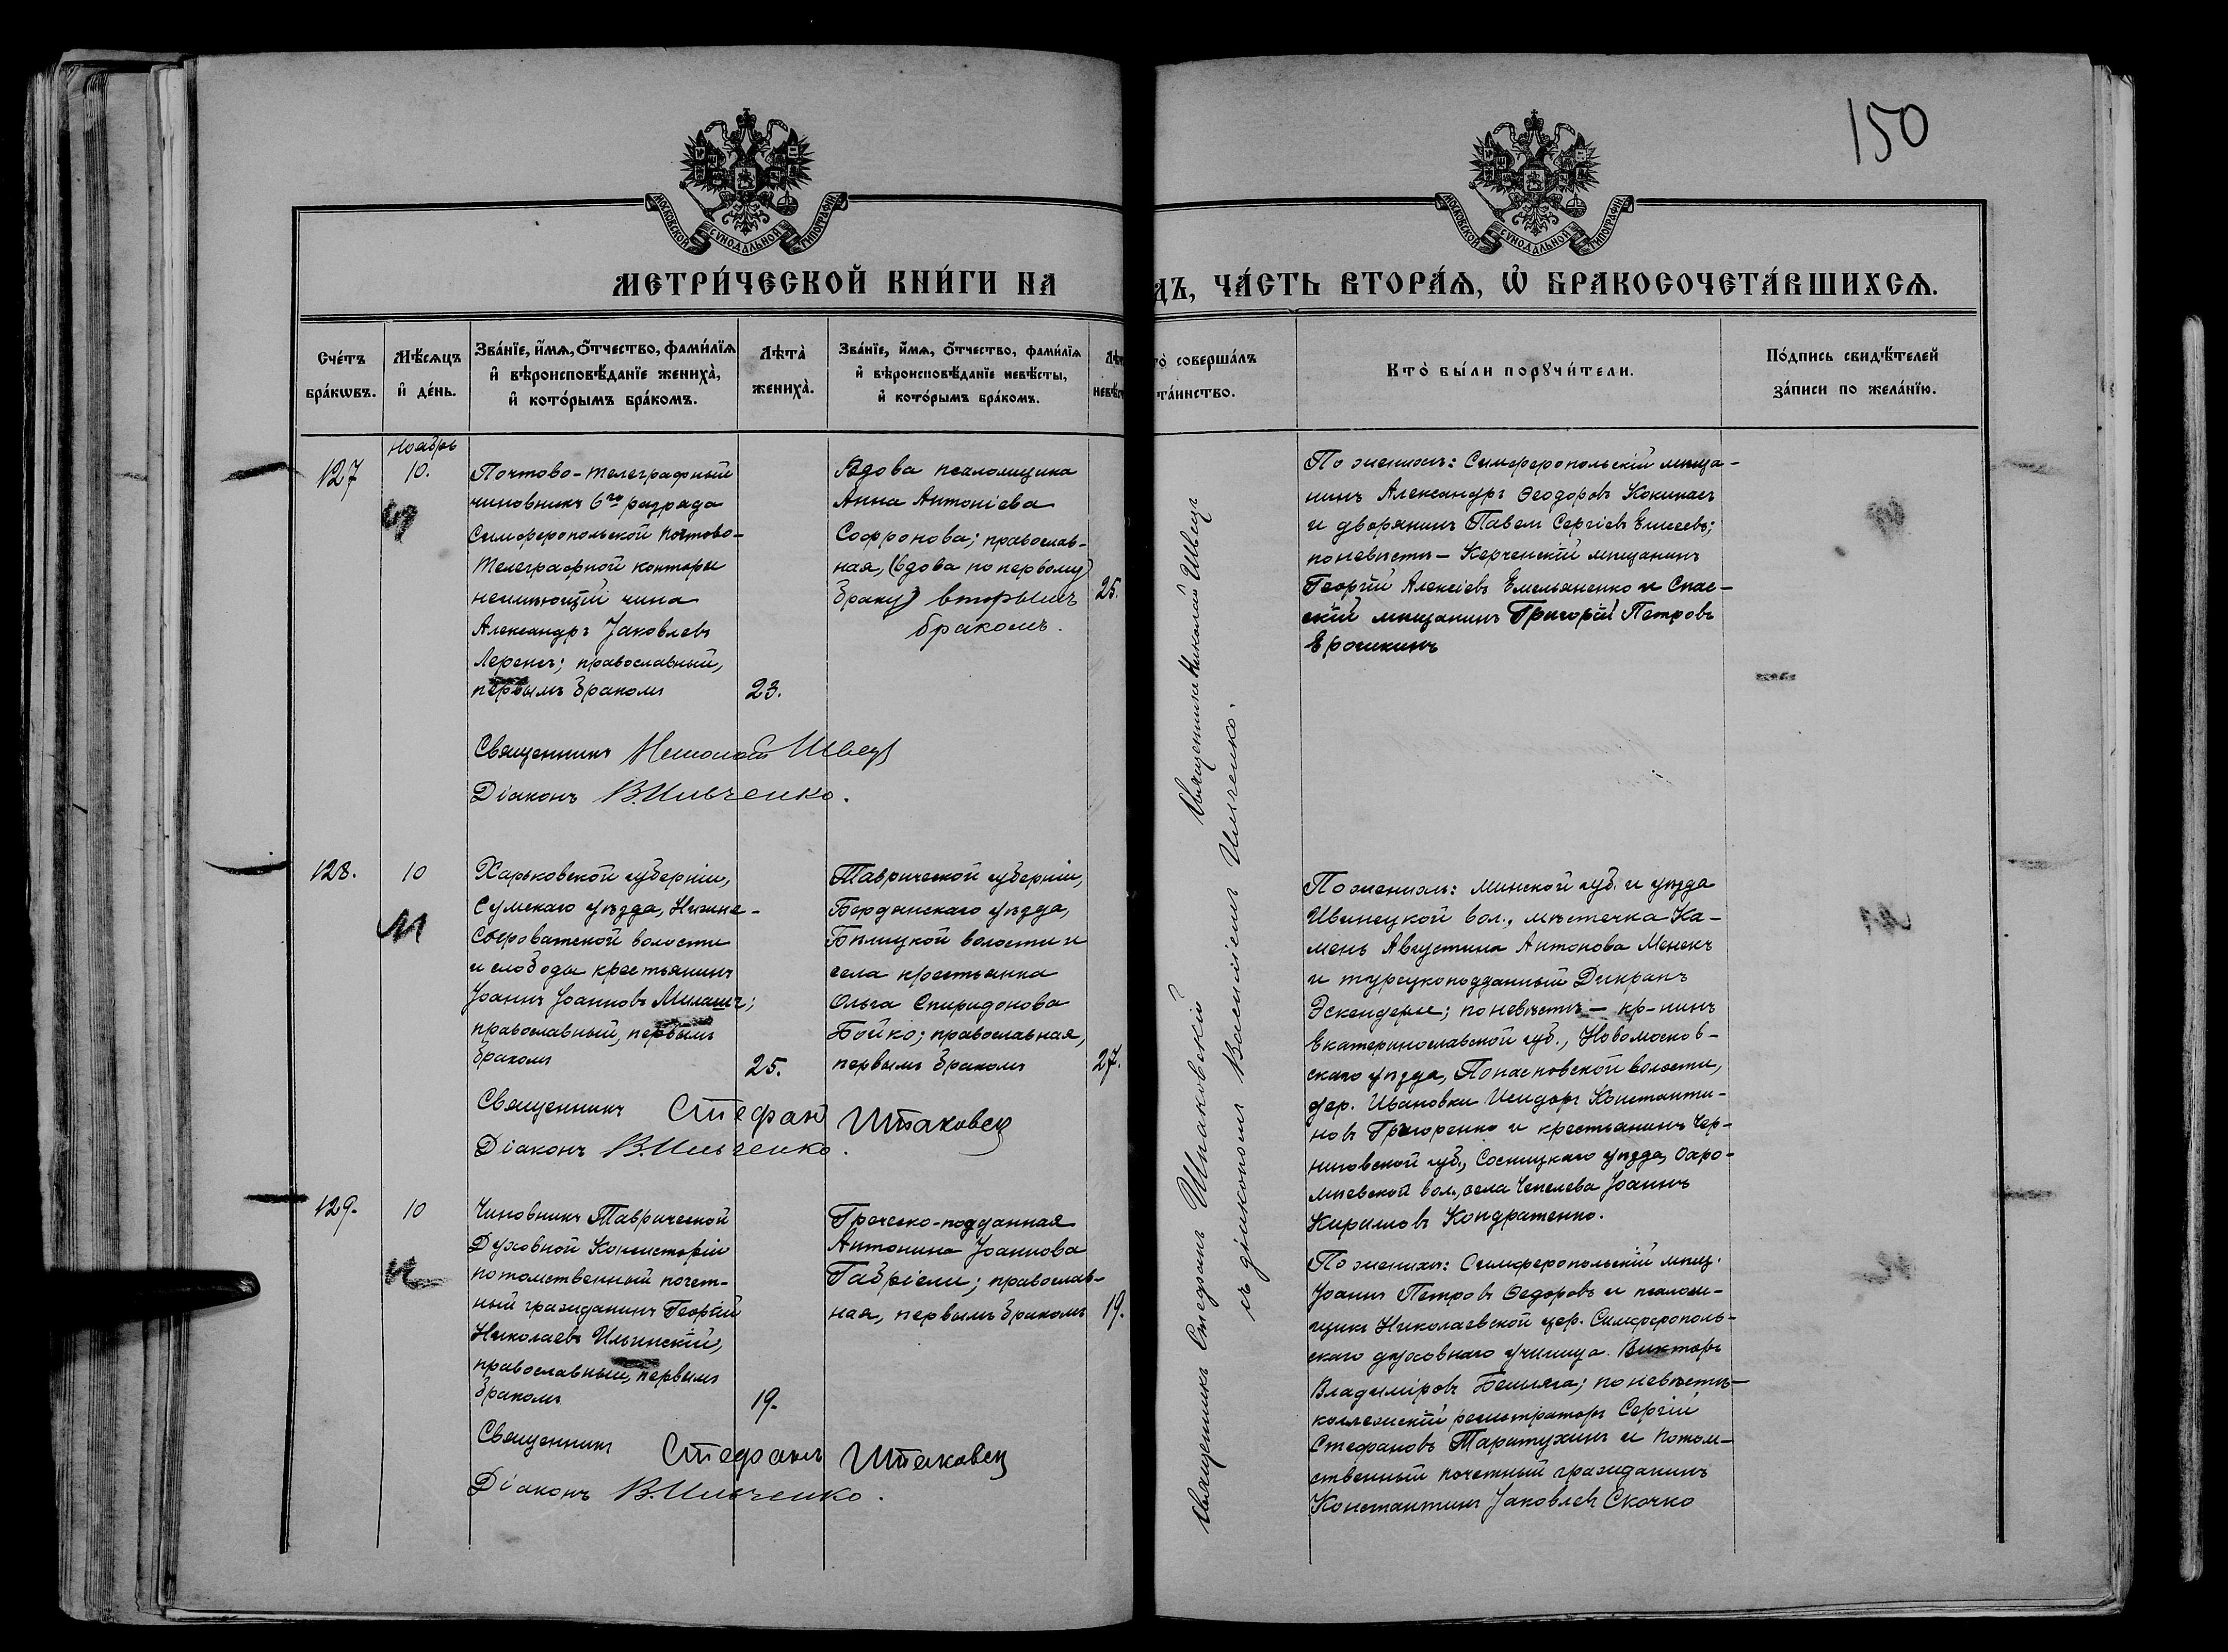 150
МОСКОВСКОЙ СѴНОДАЛЬНОЙ ТИПОГРАФІИ
МОСКОВСКОЙ СѴНОДАЛЬНОЙ ТИПОГРАФІИ
МЕТРИ́ЧЕСКОЙ КНИ́ГИ НА
ДЪ, ЧА́СТЬ ВТОРА́Ѧ, Ѡ҆ БРАКОСОЧЕТА́ВШИХСѦ.
Сче́тъ
бра́кѡвъ.
Мѣ́сѧцъ
и҆ де́нь.
Зва́нїе, и҆́мѧ, ѻ҆́тчество, фами́лїѧ
и҆ вѣроисповѣ́данїе жениха̀,
и҆ кото́рымъ бра́комъ.
Лѣ́та
жениха̀.
Зва́нїе, и҆́мѧ, ѻ҆́тчество, фами́лїѧ
и҆ вѣроисповѣ́данїе невѣ́сты,
и҆ кото́рымъ бра́комъ.
то̀ соверша́лъ
та́инство.
Кто̀ бы́ли порꙋчи́тели.
По́дпись свидѣ́телей
за́писи по жела́нїю.
Ноябрь
127
10.
Почтово-телеграфный
чиновникъ 6го разряда
Симферопольской почтово-
телеграфной конторы
неимѣющій чина
Александръ Іаковлевъ
православный,
первымъ бракомъ
23.
Вдова псаломщика
Анна Антоніева
Софронова; православ-
ная, (вдова по первому
браку) вторымъ
бракомъ.
25.
Священникъ Николай Швецъ
Діаконъ В. Ильченко.
По женихѣ: Симферопольскій мѣща-
нинъ Александръ Ѳеодоровъ
и дворянинъ Павелъ Сергіевъ Елисеевъ;
по невѣстѣ - Керченскій мѣщанинъ
Георгій Алексіевъ Емельяненко и Спас-
скій мѣщанинъ Григорій Петровъ
Ерошкинъ
128.
10
Харьковской губерніи,
Сумскаго уѣзда, Нижне-
Сыроватской волости
и слободы крестьянинъ
Іоаннъ Іоанновъ
православный, первымъ
бракомъ
25.
Таврической губерніи,
Бердянскаго уѣзда,
волости и
села крестьянка
Ольга Спиридонова
Бойко; православная,
первымъ бракомъ
27.
Священникъ Стефанъ Шпаковскій
Діаконъ В. Ильченко.
По женихѣ: Минской губ. и уѣзда
Ивенецкой вол., мѣстечка Ка-
мень Августинъ Антоновъ
и турецкоподданный Дикранъ
по невѣстѣ - кр-нинъ
Екатеринославской губ., Новомосков-
скаго уѣзда, волости,
дер. Ивановки Исидоръ Константи-
новъ Григоренко и крестьянинъ Чер-
ниговской губ., Сосницкаго уѣзда,
вол., села Чепелева Іоаннъ
Кирилловъ Кондратенко.
129.
10
Чиновникъ Таврической
Духовной Консисторіи
потомственный почет-
ный гражданинъ Георгій
Николаевъ Ильинскій,
православный, первымъ
бракомъ
19.
Греческо-подданная
Антонина Іоаннова
Габріели; православ-
ная, первымъ бракомъ
19.
Священникъ Стефанъ Шпаковскій
Діаконъ В. Ильченко.
По женихѣ: Симферопольскій мѣщ.
Іоаннъ Петровъ Ѳедоровъ и псалом-
щикъ Николаевской цер. Симферополь-
скаго духовнаго училища Викторъ
Владиміровъ по невѣстѣ -
коллежскій регистраторъ Сергій
Стефановъ Таратухинъ и потом-
ственный почетный гражданинъ
Константинъ Іаковлевъ Скочко
Священникъ Стефанъ Шпаковскій Священникъ Николай Швецъ
съ діакономъ Василіемъ Ильченко.